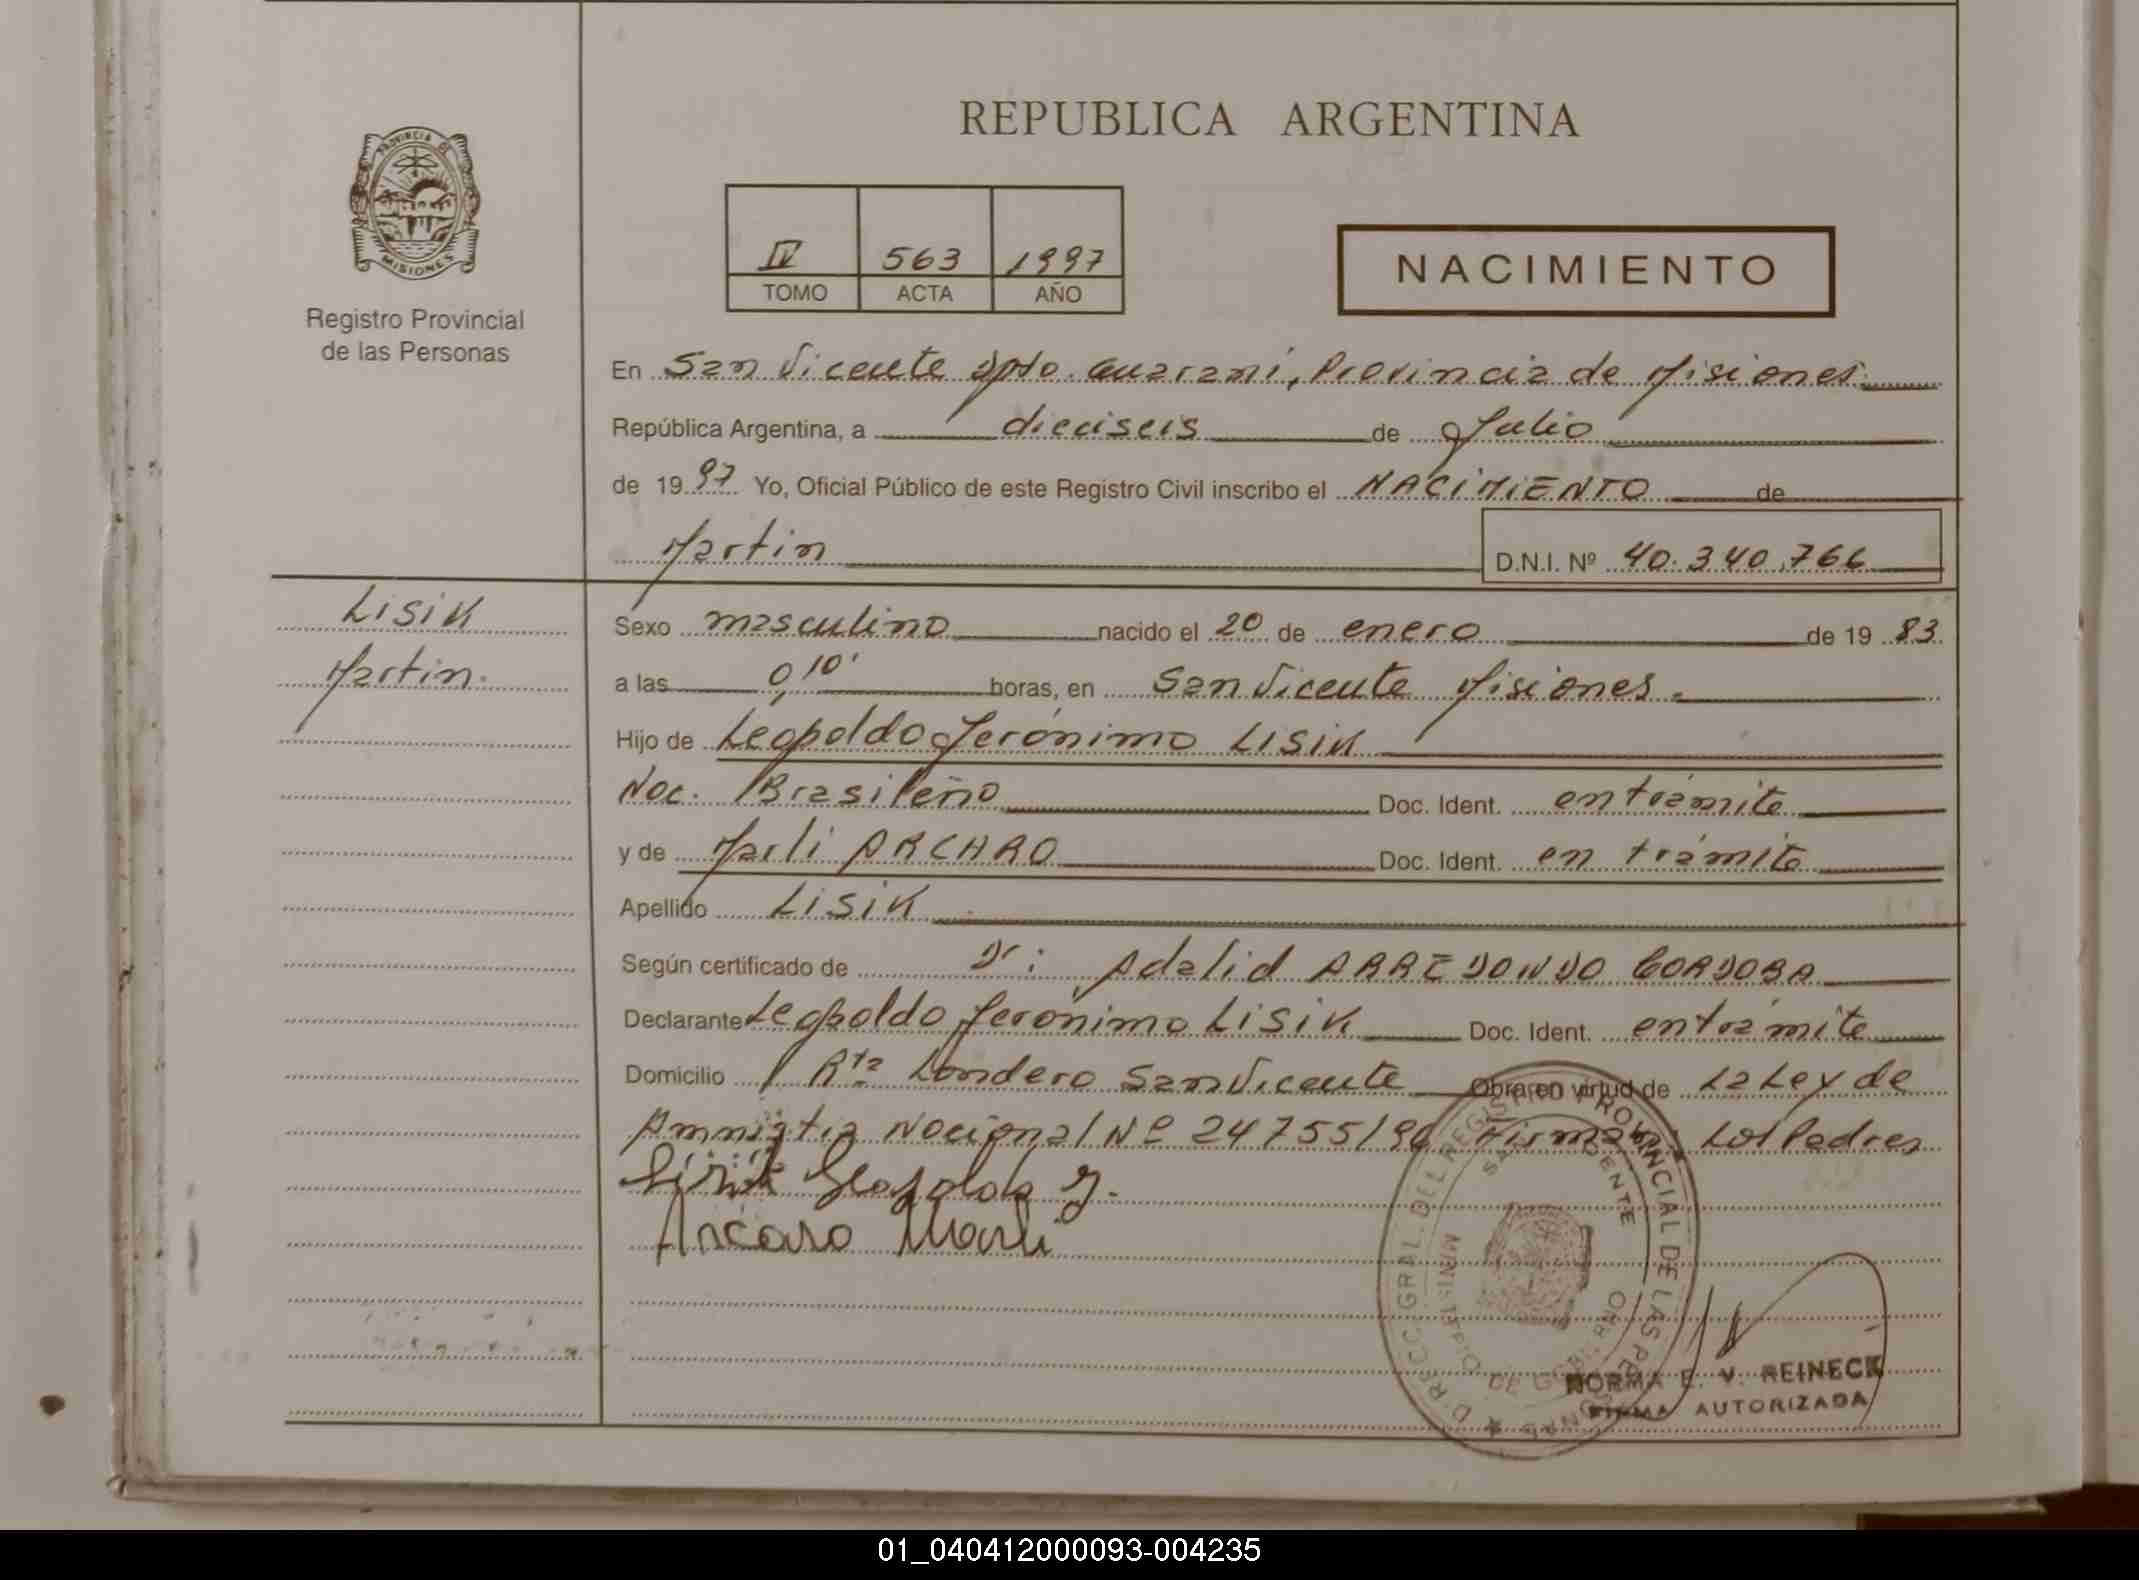 REPUBLICA ARGENTINA
PROVINCIA DE
MISIONES
Registro Provincial
de las Personas
IV 563 1997
TOMO ACTA AÑO
NACIMIENTO
En San Vicente Dpto. Guaraní, Provincia de Misiones.
República Argentina, a dieciseis de Julio
de 1997 Yo, Oficial Público de este Registro Civil inscribo el NACIMIENTO de
Martin D.N.I. Nº 40.340.766
LISIK
Martin.
Sexo masculino nacido el 20 de enero de 1983
a las 0,10' horas, en San Vicente Misiones.
Hijo de Leopoldo Jerónimo LISIK
Nac. Brasileño Doc. Ident. en trámite
y de Marli ARCHARO Doc. Ident. en trámite
Apellido LISIK
Según certificado de Dr: Adalid ARREDONDO CORDOBA
Declarante Leopoldo Jerónimo LISIK Doc. Ident. en trámite
Domicilio Rta Londero San Vicente Obra en virtud de La Ley de
Amnistia Nacional Nº 24755/96 Firman: Los Padres
Lisik Leopoldo J.
Arcaro Marli
DIRECC. GRAL. DEL REGISTRO PROVINCIAL DE LAS PERSONAS
SAN VICENTE
MINISTERIO DE GOBIERNO
NORMA E. V. REINECK
FIRMA AUTORIZADA
01_040412000093-004235